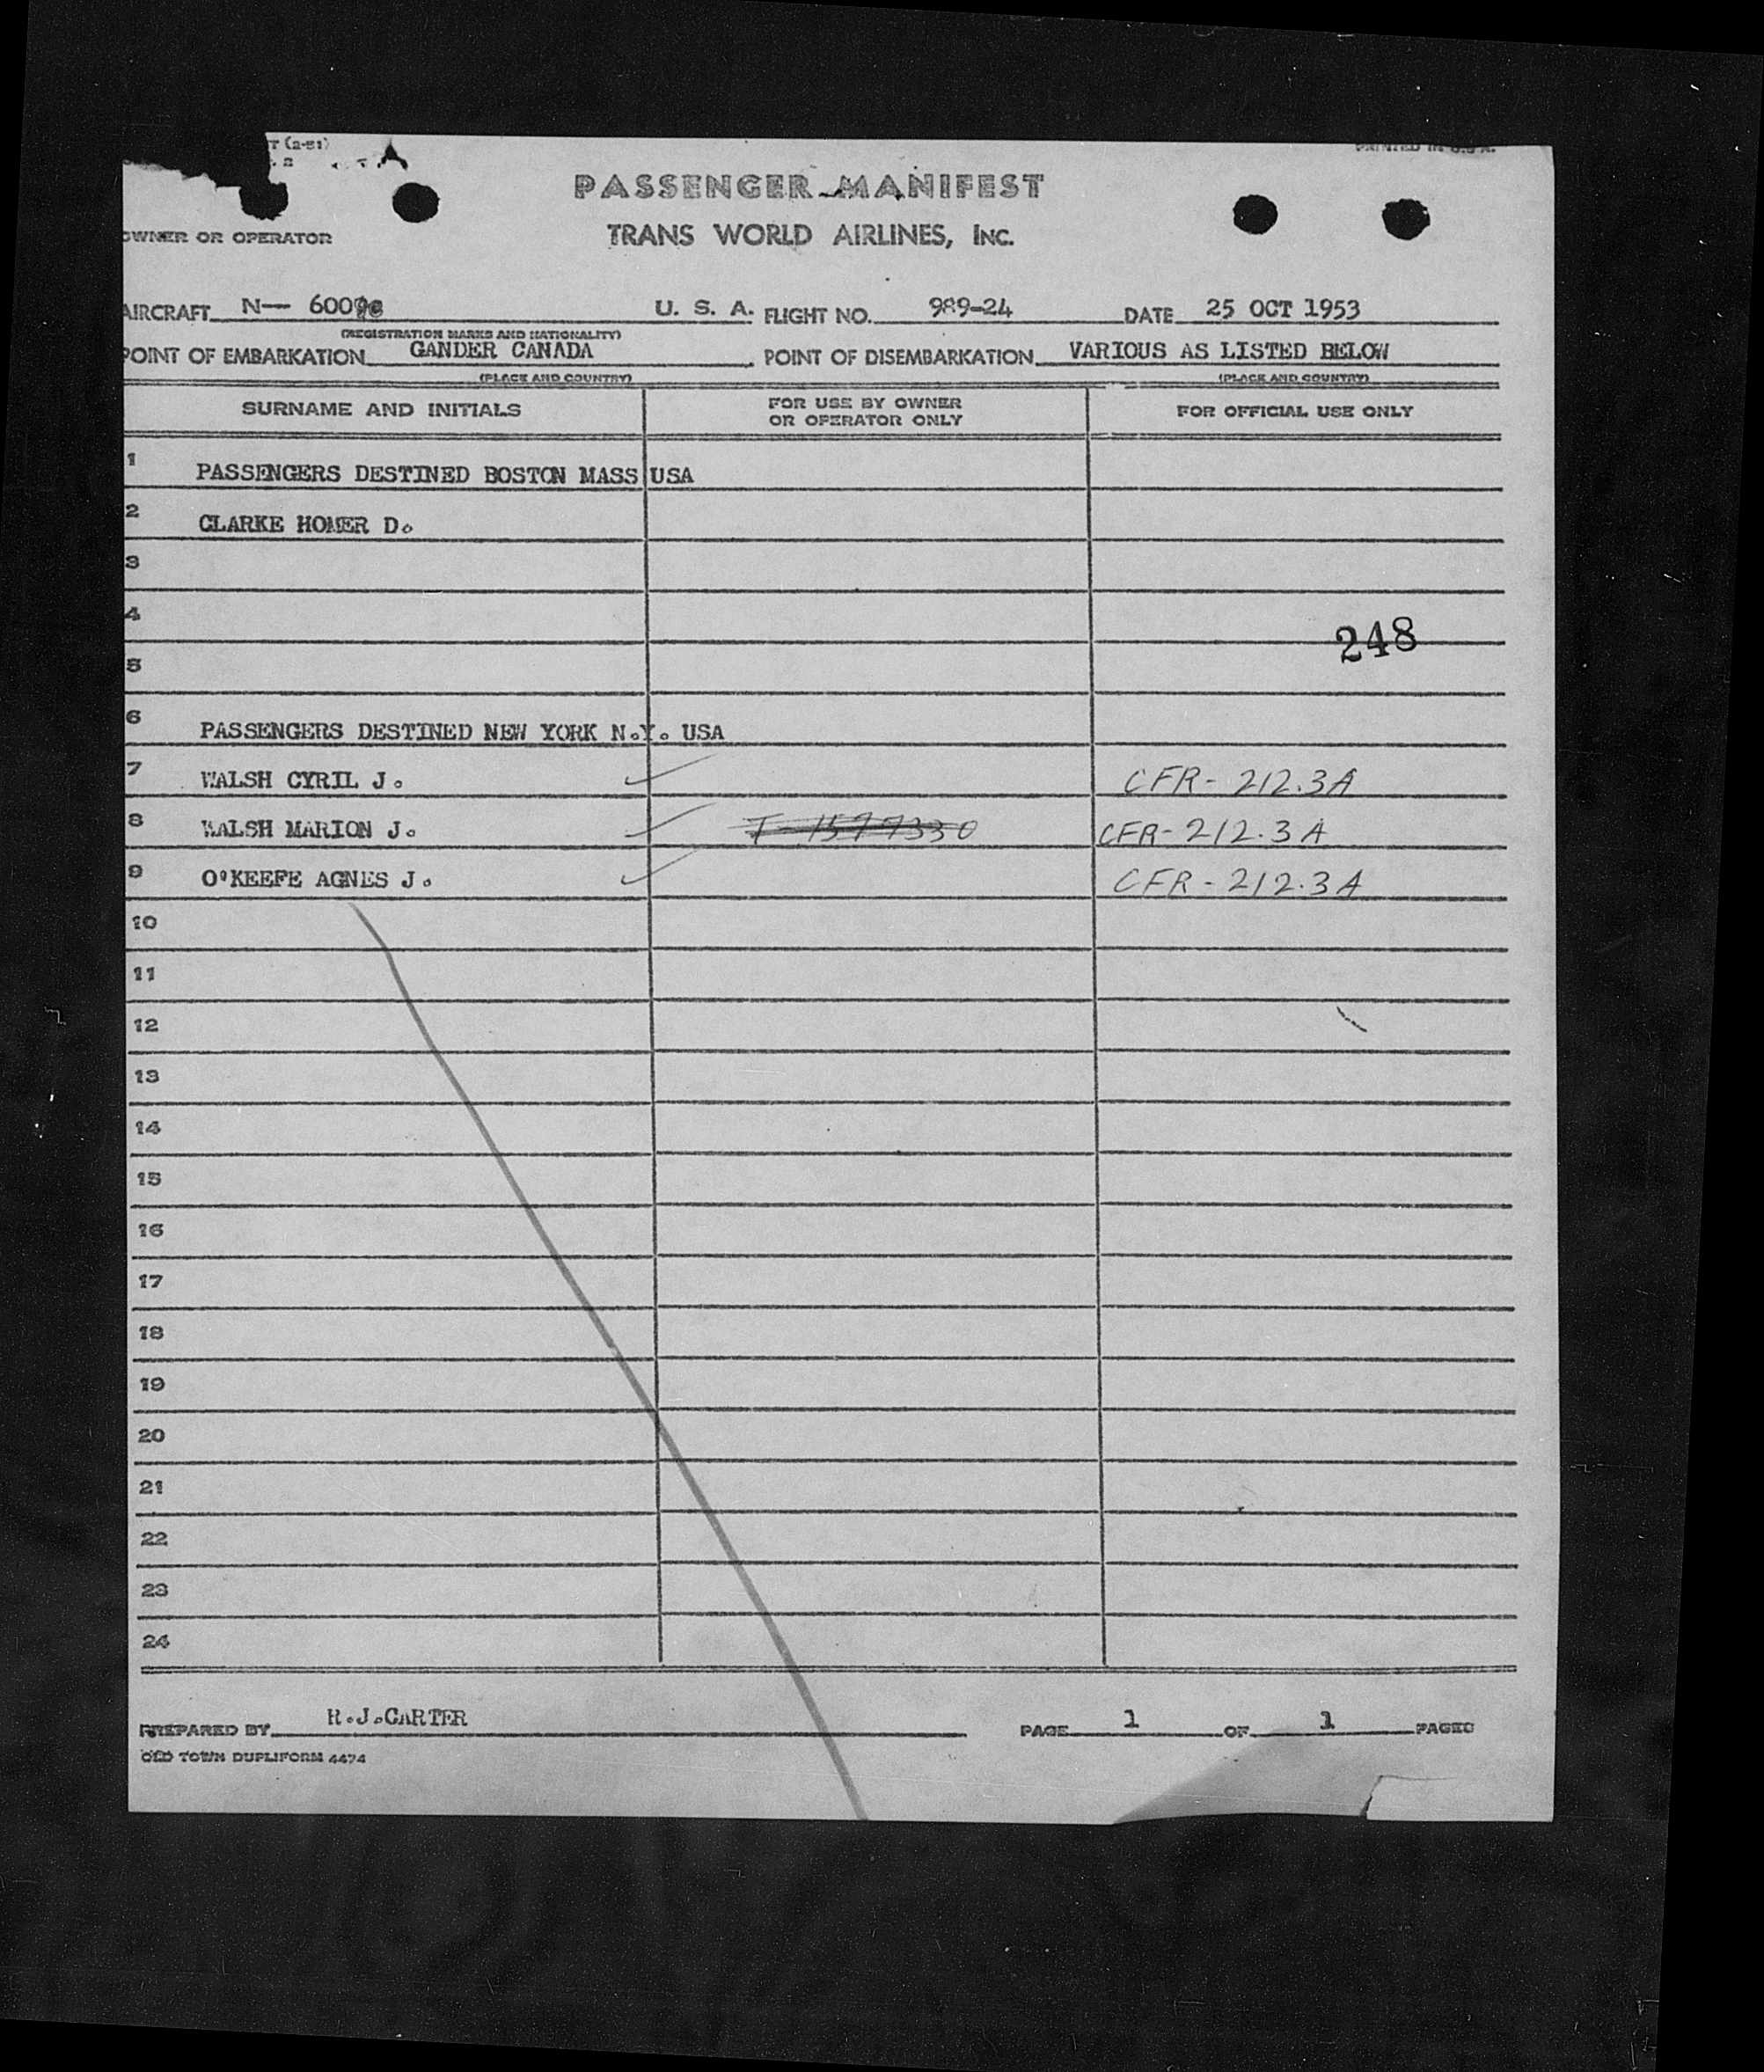 T (2-51)
PRINTED IN U.S.A.
PASSENGER MANIFEST
OWNER OR OPERATOR
TRANS WORLD AIRLINES, INC.
AIRCRAFT N— U. S. A. FLIGHT NO. 989-24 DATE 25 OCT 1953
(REGISTRATION MARKS AND NATIONALITY)
POINT OF EMBARKATION GANDER CANADA POINT OF DISEMBARKATION VARIOUS AS LISTED BELOW
(PLACE AND COUNTRY) (PLACE AND COUNTRY)
SURNAME AND INITIALS FOR USE BY OWNER OR OPERATOR ONLY FOR OFFICIAL USE ONLY
1 PASSENGERS DESTINED BOSTON MASS USA
2 CLARKE HOMER D.
3
4
248
5
6 PASSENGERS DESTINED NEW YORK N.Y. USA
7 WALSH CYRIL J. CFR- 212.3A
8 WALSH MARION J. CFR- 212.3A
9 O'KEEFE AGNES J. CFR- 212.3A
10
11
12
13
14
15
16
17
18
19
20
21
22
23
24
PREPARED BY R.J.CARTER PAGE 1 OF 1 PAGES
OLD TOWN DUPLIFORM 4474